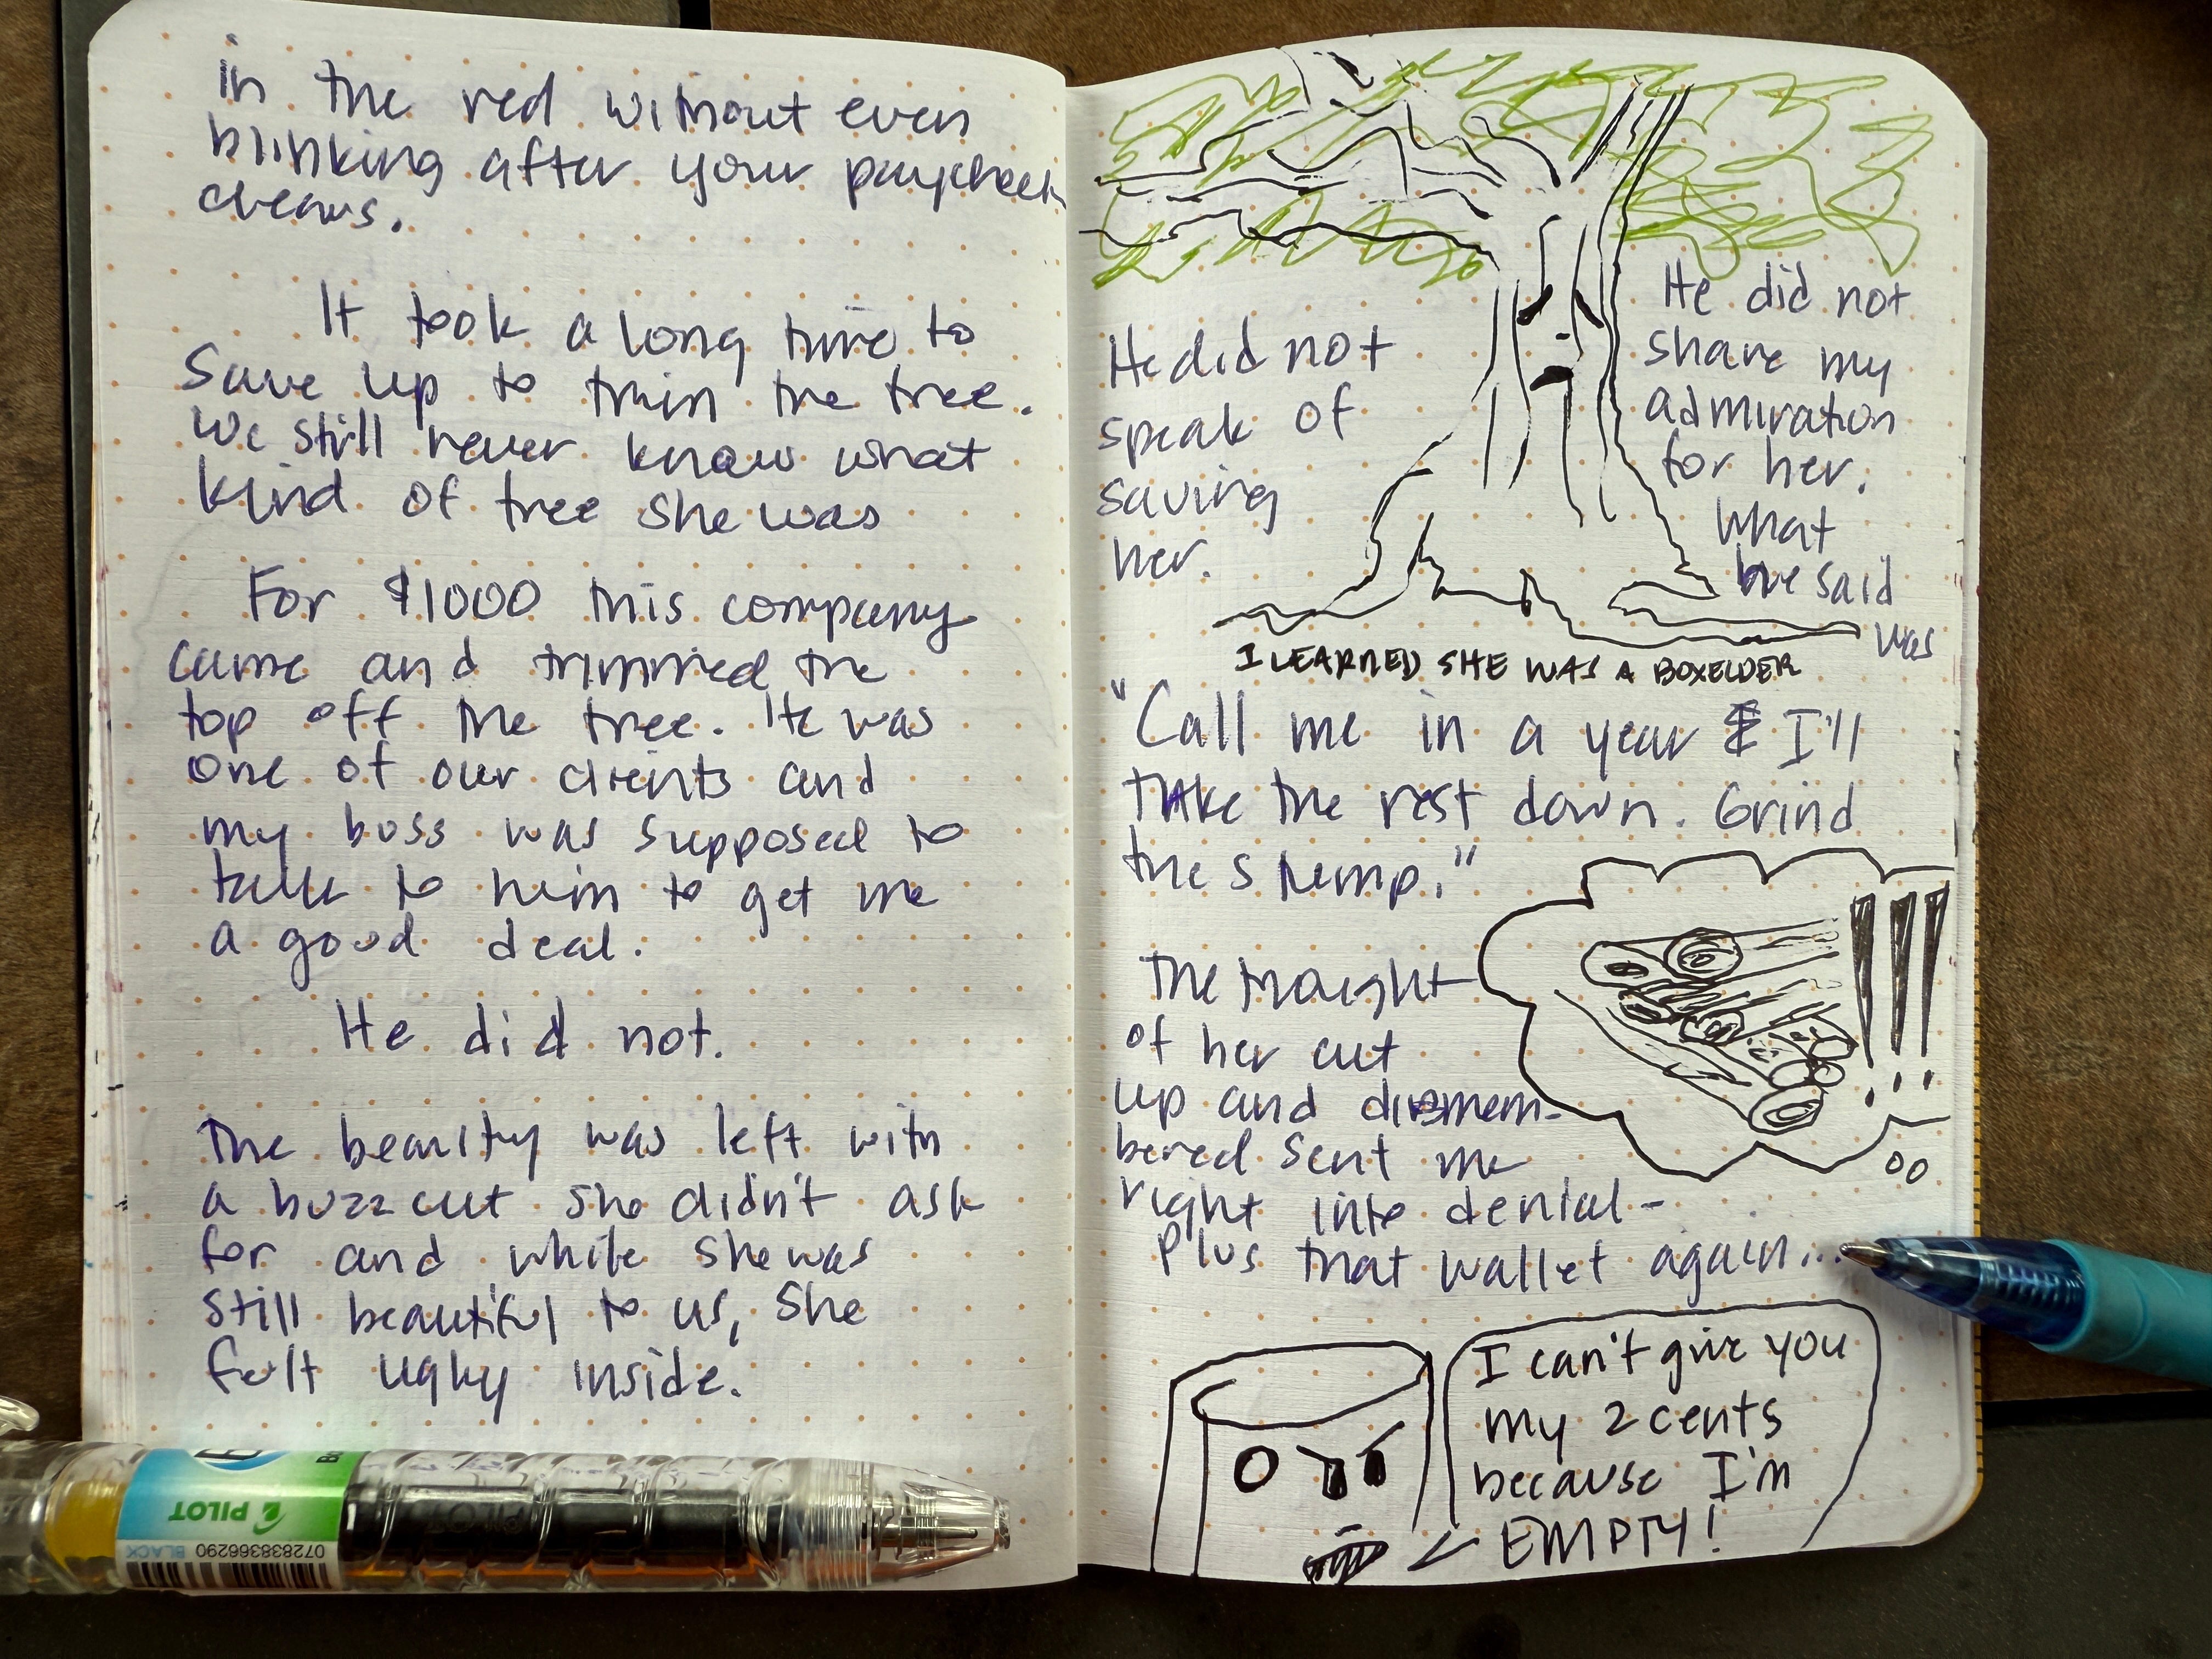 in the red without even
blinking after your paycheck
clears.
It took a long time to
save up to trim the tree.
We still never knew what
kind of tree she was
For $1000 this company
came and trimmed the
top off the tree. He was
one of our clients and
my boss was supposed to
talk to him to get me
a good deal.
He did not.
The beauty was left with
a buzz cut she didn't ask
for and while she was
still beautiful to us, she
felt ugly inside.
PILOT
BLACK
072838366290
He did not
speak of
saving
her.
He did not
share my
admiration
for her.
What
he said
was
I LEARNED SHE WAS A BOXELDER
"Call me in a year & I'll
take the rest down. Grind
the stump."
The thought
of her cut
up and dismem-
bered sent me
right into denial-
Plus that wallet again...
!!!
I can't give you
my 2 cents
because I'm
EMPTY!